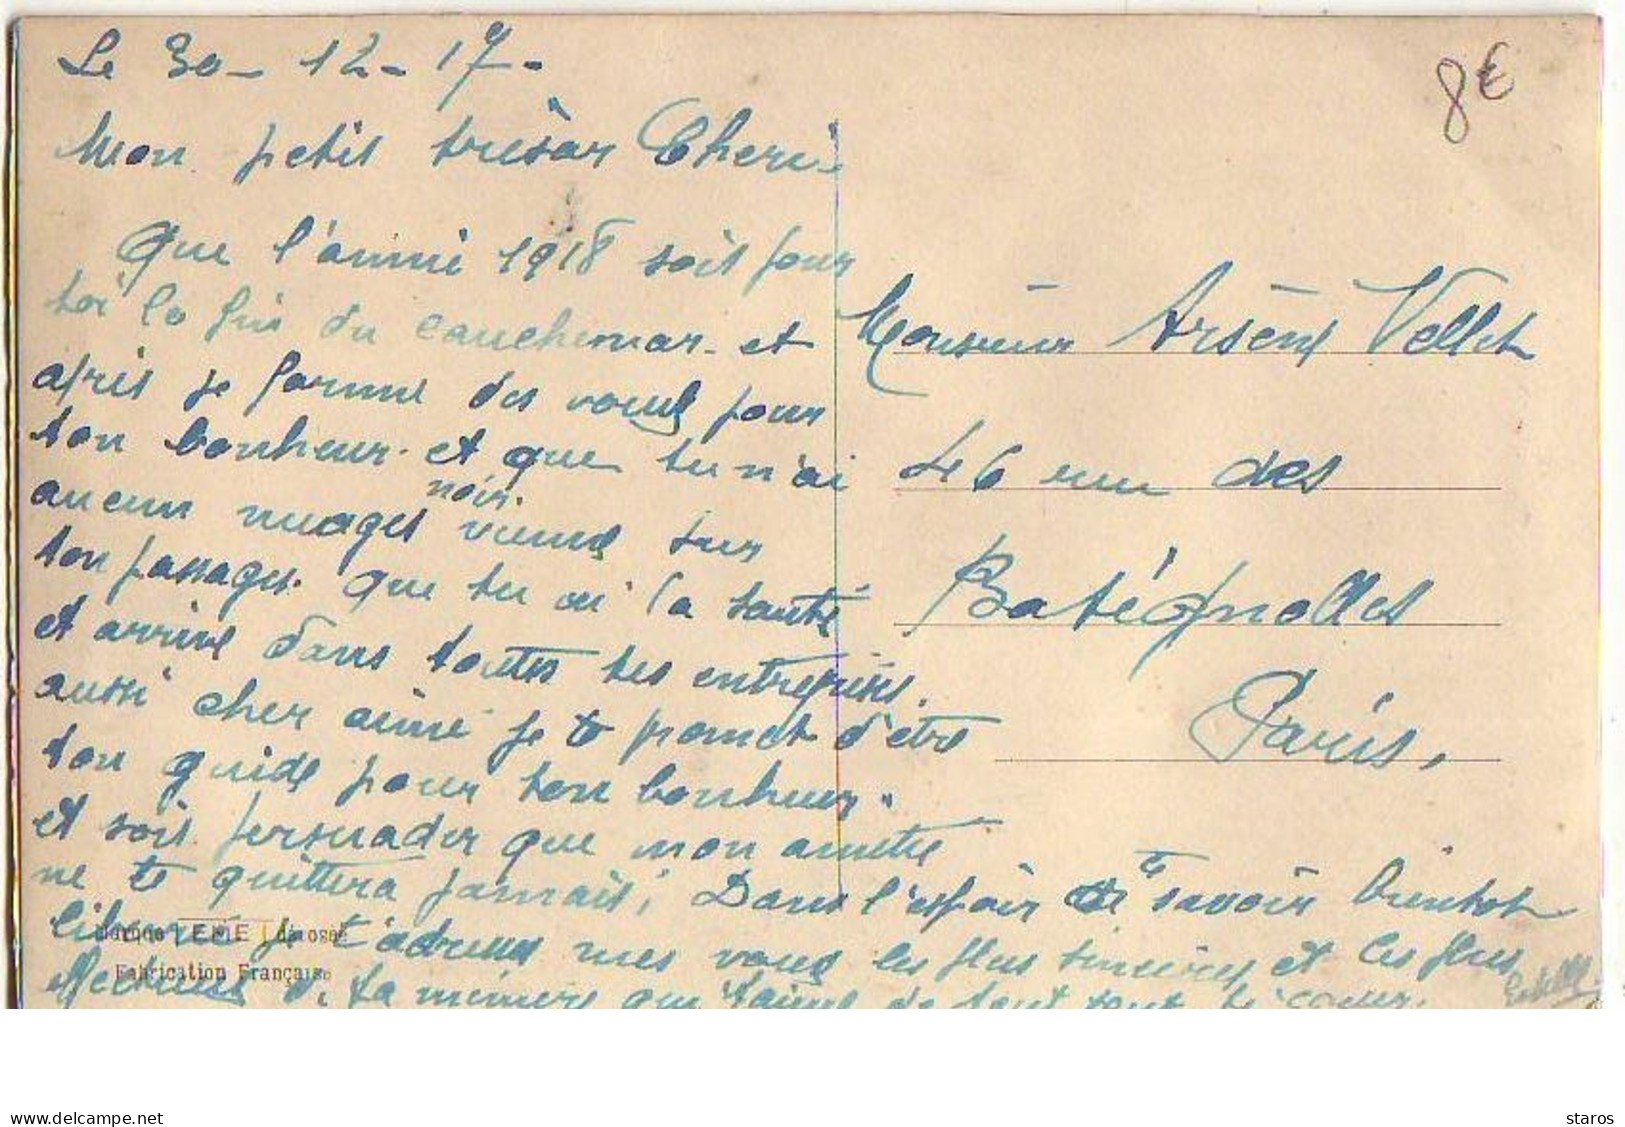 Le 30 - 12 - 17 -
8€
Mon petit trésor Cheri -
Que l'année 1918 soit pour
toi la fin du cauchemar - et
après je forme des voeux pour
ton bonheur - et que tu n'ai
noir
aucun nuages vienne sur
ton passages. que tu ai la santé
et arrive dans toutes tes entreprises.
aussi cher aimé je te promet d'être
ton guide pour ton bonheur.
et sois persuader que mon amitié
ne te quittera jamais; Dans l'espoir de te savoir bientot
liberé je t'adresse mes voeux les plus sincères et les plus
de ta mimire qui t'aime de tout son coeur.
Monsieur Arsène Vellet
46 rue des
Batégnolles
Paris.
Marque LEME déposée
Fabrication Française
www.delcampe.net
staros